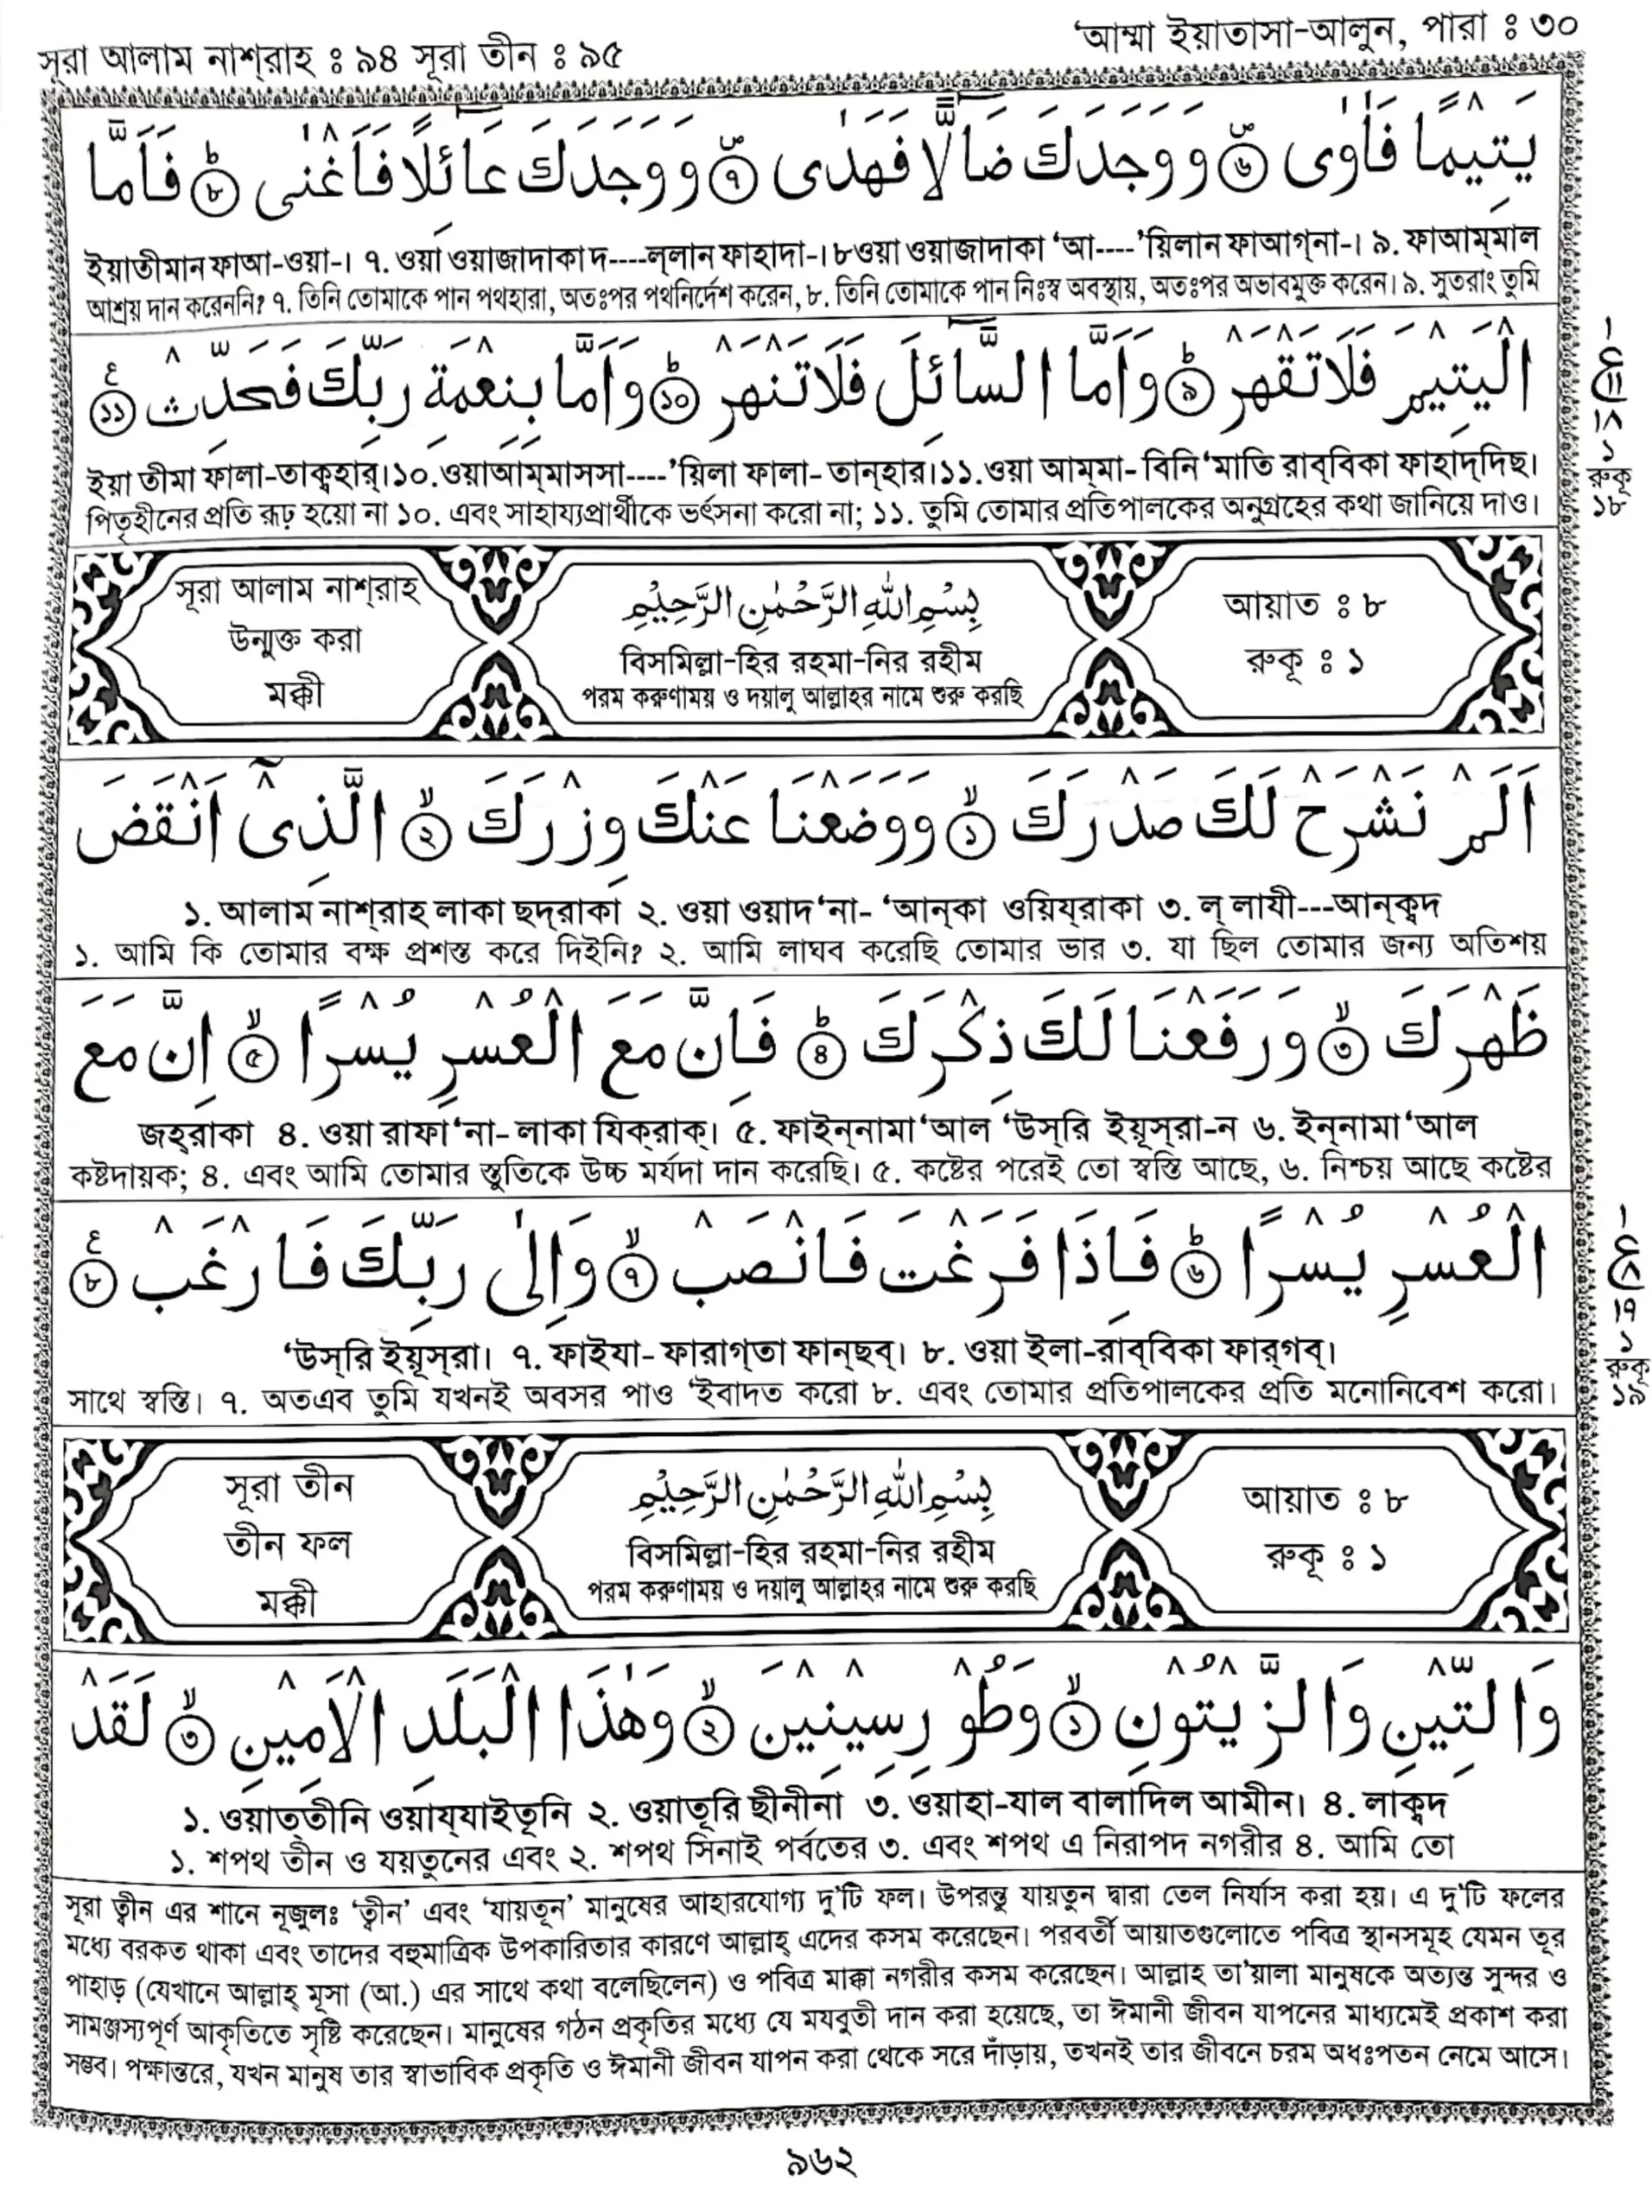 সূরা আলাম নাশ্‌রাহ ঃ ৯৪ সূরা তীন ঃ ৯৫
‘আম্মা ইয়াতাসা-আলুন, পারা ঃ ৩০
يَتِيْمًا فَاٰوٰى ۶ وَوَجَدَكَ ضَآلًّا فَهَدٰى ۷ وَوَجَدَكَ عَآئِلًا فَاَغْنٰى ۸ فَاَمَّا
ইয়াতীমান ফাআ-ওয়া-। ৭. ওয়া ওয়াজাদাকা দ----ল্‌লান ফাহাদা-। ৮ওয়া ওয়াজাদাকা ‘আ----’য়িলান ফাআগ্‌না-। ৯. ফাআম্‌মাল
আশ্রয় দান করেননি? ৭. তিনি তোমাকে পান পথহারা, অতঃপর পথনির্দেশ করেন, ৮. তিনি তোমাকে পান নিঃস্ব অবস্থায়, অতঃপর অভাবমুক্ত করেন। ৯. সুতরাং তুমি
الْيَتِيْمَ فَلَا تَقْهَرْ ۹ وَاَمَّا السَّآئِلَ فَلَا تَنْهَرْ ۱۰ وَاَمَّا بِنِعْمَةِ رَبِّكَ فَحَدِّثْ ۱۱
ع
۱۱
১৮
১
রুকূ
১৮
ইয়া তীমা ফালা-তাক্বহার্‌। ১০.ওয়াআম্‌মাসসা----’য়িলা ফালা- তান্‌হার। ১১.ওয়া আম্‌মা- বিনি‘মাতি রাব্‌বিকা ফাহাদ্‌দিছ।
পিতৃহীনের প্রতি রূঢ় হয়ো না ১০. এবং সাহায্যপ্রার্থীকে ভর্ৎসনা করো না; ১১. তুমি তোমার প্রতিপালকের অনুগ্রহের কথা জানিয়ে দাও।
সূরা আলাম নাশ্‌রাহ
উন্মুক্ত করা
মক্কী
بِسْمِ اللّٰهِ الرَّحْمٰنِ الرَّحِيْمِ
বিসমিল্লা-হির রহমা-নির রহীম
পরম করুণাময় ও দয়ালু আল্লাহর নামে শুরু করছি
আয়াত ঃ ৮
রুকূ ঃ ১
اَلَمْ نَشْرَحْ لَكَ صَدْرَكَ ۱ وَوَضَعْنَا عَنْكَ وِزْرَكَ ۲ الَّذِىْٓ اَنْقَضَ
১. আলাম নাশ্‌রাহ লাকা ছদ্‌রাকা ২. ওয়া ওয়াদ‘না- ‘আন্‌কা ওয়িয্‌রাকা ৩. ল্‌ লাযী---আন্‌ক্বদ
১. আমি কি তোমার বক্ষ প্রশস্ত করে দিইনি? ২. আমি লাঘব করেছি তোমার ভার ৩. যা ছিল তোমার জন্য অতিশয়
ظَهْرَكَ ۳ وَرَفَعْنَا لَكَ ذِكْرَكَ ۴ فَاِنَّ مَعَ الْعُسْرِ يُسْرًا ۵ اِنَّ مَعَ
জহ্‌রাকা ৪. ওয়া রাফা‘না- লাকা যিক্‌রাক্‌। ৫. ফাইন্‌নামা‘আল ‘উস্‌রি ইয়ূস্‌রা-ন ৬. ইন্‌নামা‘আল
কষ্টদায়ক; ৪. এবং আমি তোমার স্তুতিকে উচ্চ মর্যদা দান করেছি। ৫. কষ্টের পরেই তো স্বস্তি আছে, ৬. নিশ্চয় আছে কষ্টের
الْعُسْرِ يُسْرًا ۶ فَاِذَا فَرَغْتَ فَانْصَبْ ۷ وَاِلٰى رَبِّكَ فَارْغَبْ ۸
ع
۸
১৯
১
রুকূ
১৯
‘উস্‌রি ইয়ূস্‌রা। ৭. ফাইযা- ফারাগ্‌তা ফান্‌ছব্‌। ৮. ওয়া ইলা-রাব্‌বিকা ফার্‌গব্‌।
সাথে স্বস্তি। ৭. অতএব তুমি যখনই অবসর পাও ‘ইবাদত করো ৮. এবং তোমার প্রতিপালকের প্রতি মনোনিবেশ করো।
সূরা তীন
তীন ফল
মক্কী
بِسْمِ اللّٰهِ الرَّحْمٰنِ الرَّحِيْمِ
বিসমিল্লা-হির রহমা-নির রহীম
পরম করুণাময় ও দয়ালু আল্লাহর নামে শুরু করছি
আয়াত ঃ ৮
রুকূ ঃ ১
وَالتِّيْنِ وَالزَّيْتُوْنِ ۱ وَطُوْرِ سِيْنِيْنَ ۲ وَهٰذَا الْبَلَدِ الْاَمِيْنِ ۳ لَقَدْ
১. ওয়াত্‌তীনি ওয়ায্‌যাইতূনি ২. ওয়াতূরি ছীনীনা ৩. ওয়াহা-যাল বালাদিল আমীন। ৪. লাক্বদ
১. শপথ তীন ও যয়তুনের এবং ২. শপথ সিনাই পর্বতের ৩. এবং শপথ এ নিরাপদ নগরীর ৪. আমি তো
সূরা ত্বীন এর শানে নূজুলঃ ‘ত্বীন’ এবং ‘যায়তূন’ মানুষের আহারযোগ্য দু’টি ফল। উপরন্তু যায়তুন দ্বারা তেল নির্যাস করা হয়। এ দু’টি ফলের
মধ্যে বরকত থাকা এবং তাদের বহুমাত্রিক উপকারিতার কারণে আল্লাহ্‌ এদের কসম করেছেন। পরবর্তী আয়াতগুলোতে পবিত্র স্থানসমূহ যেমন তূর
পাহাড় (যেখানে আল্লাহ্‌ মূসা (আ.) এর সাথে কথা বলেছিলেন) ও পবিত্র মাক্কা নগরীর কসম করেছেন। আল্লাহ তা’য়ালা মানুষকে অত্যন্ত সুন্দর ও
সামঞ্জস্যপূর্ণ আকৃতিতে সৃষ্টি করেছেন। মানুষের গঠন প্রকৃতির মধ্যে যে মযবুতী দান করা হয়েছে, তা ঈমানী জীবন যাপনের মাধ্যমেই প্রকাশ করা
সম্ভব। পক্ষান্তরে, যখন মানুষ তার স্বাভাবিক প্রকৃতি ও ঈমানী জীবন যাপন করা থেকে সরে দাঁড়ায়, তখনই তার জীবনে চরম অধঃপতন নেমে আসে।
৯৬২